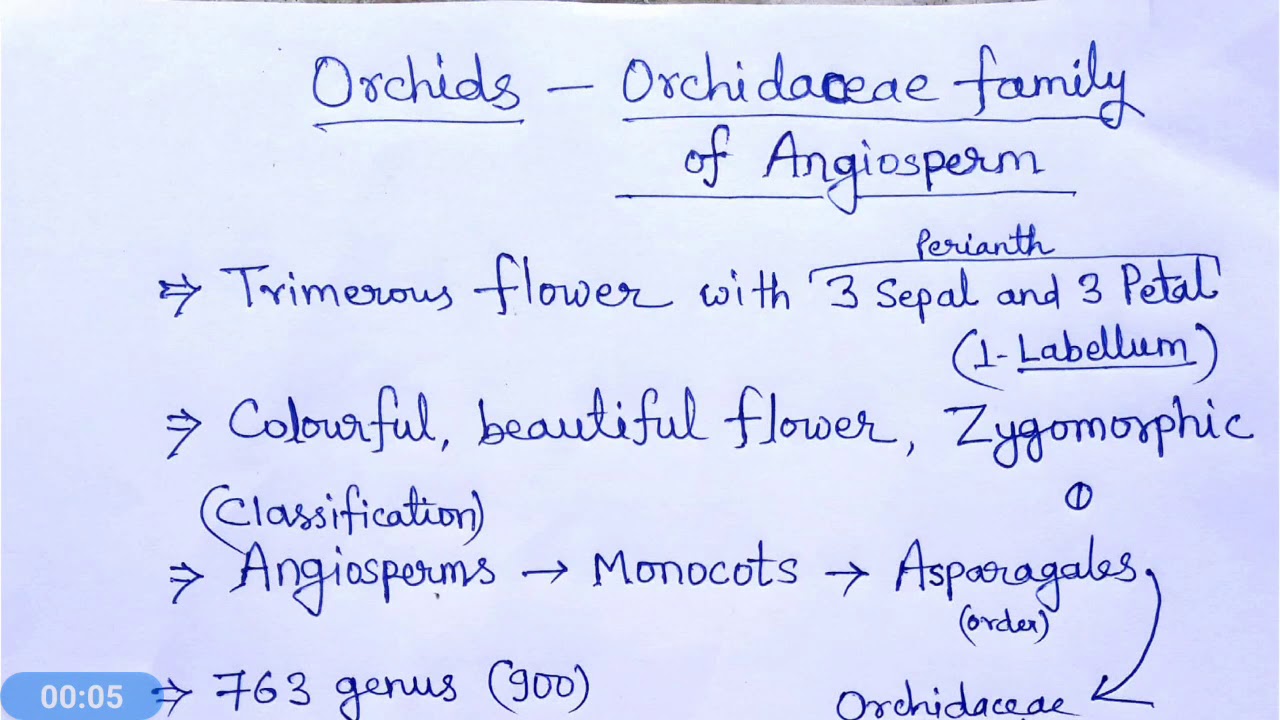 Orchids - Orchidaceae family
of Angiosperm
Perianth
⇒ Trimerous flower with 3 Sepal and 3 Petal
(1-Labellum)
⇒ Colourful, beautiful flower, Zygomorphic
(Classification)
⇒ Angiosperms → Monocots → Asparagales
(order)
⇒ 763 genus (900)
Orchidaceae
00:05